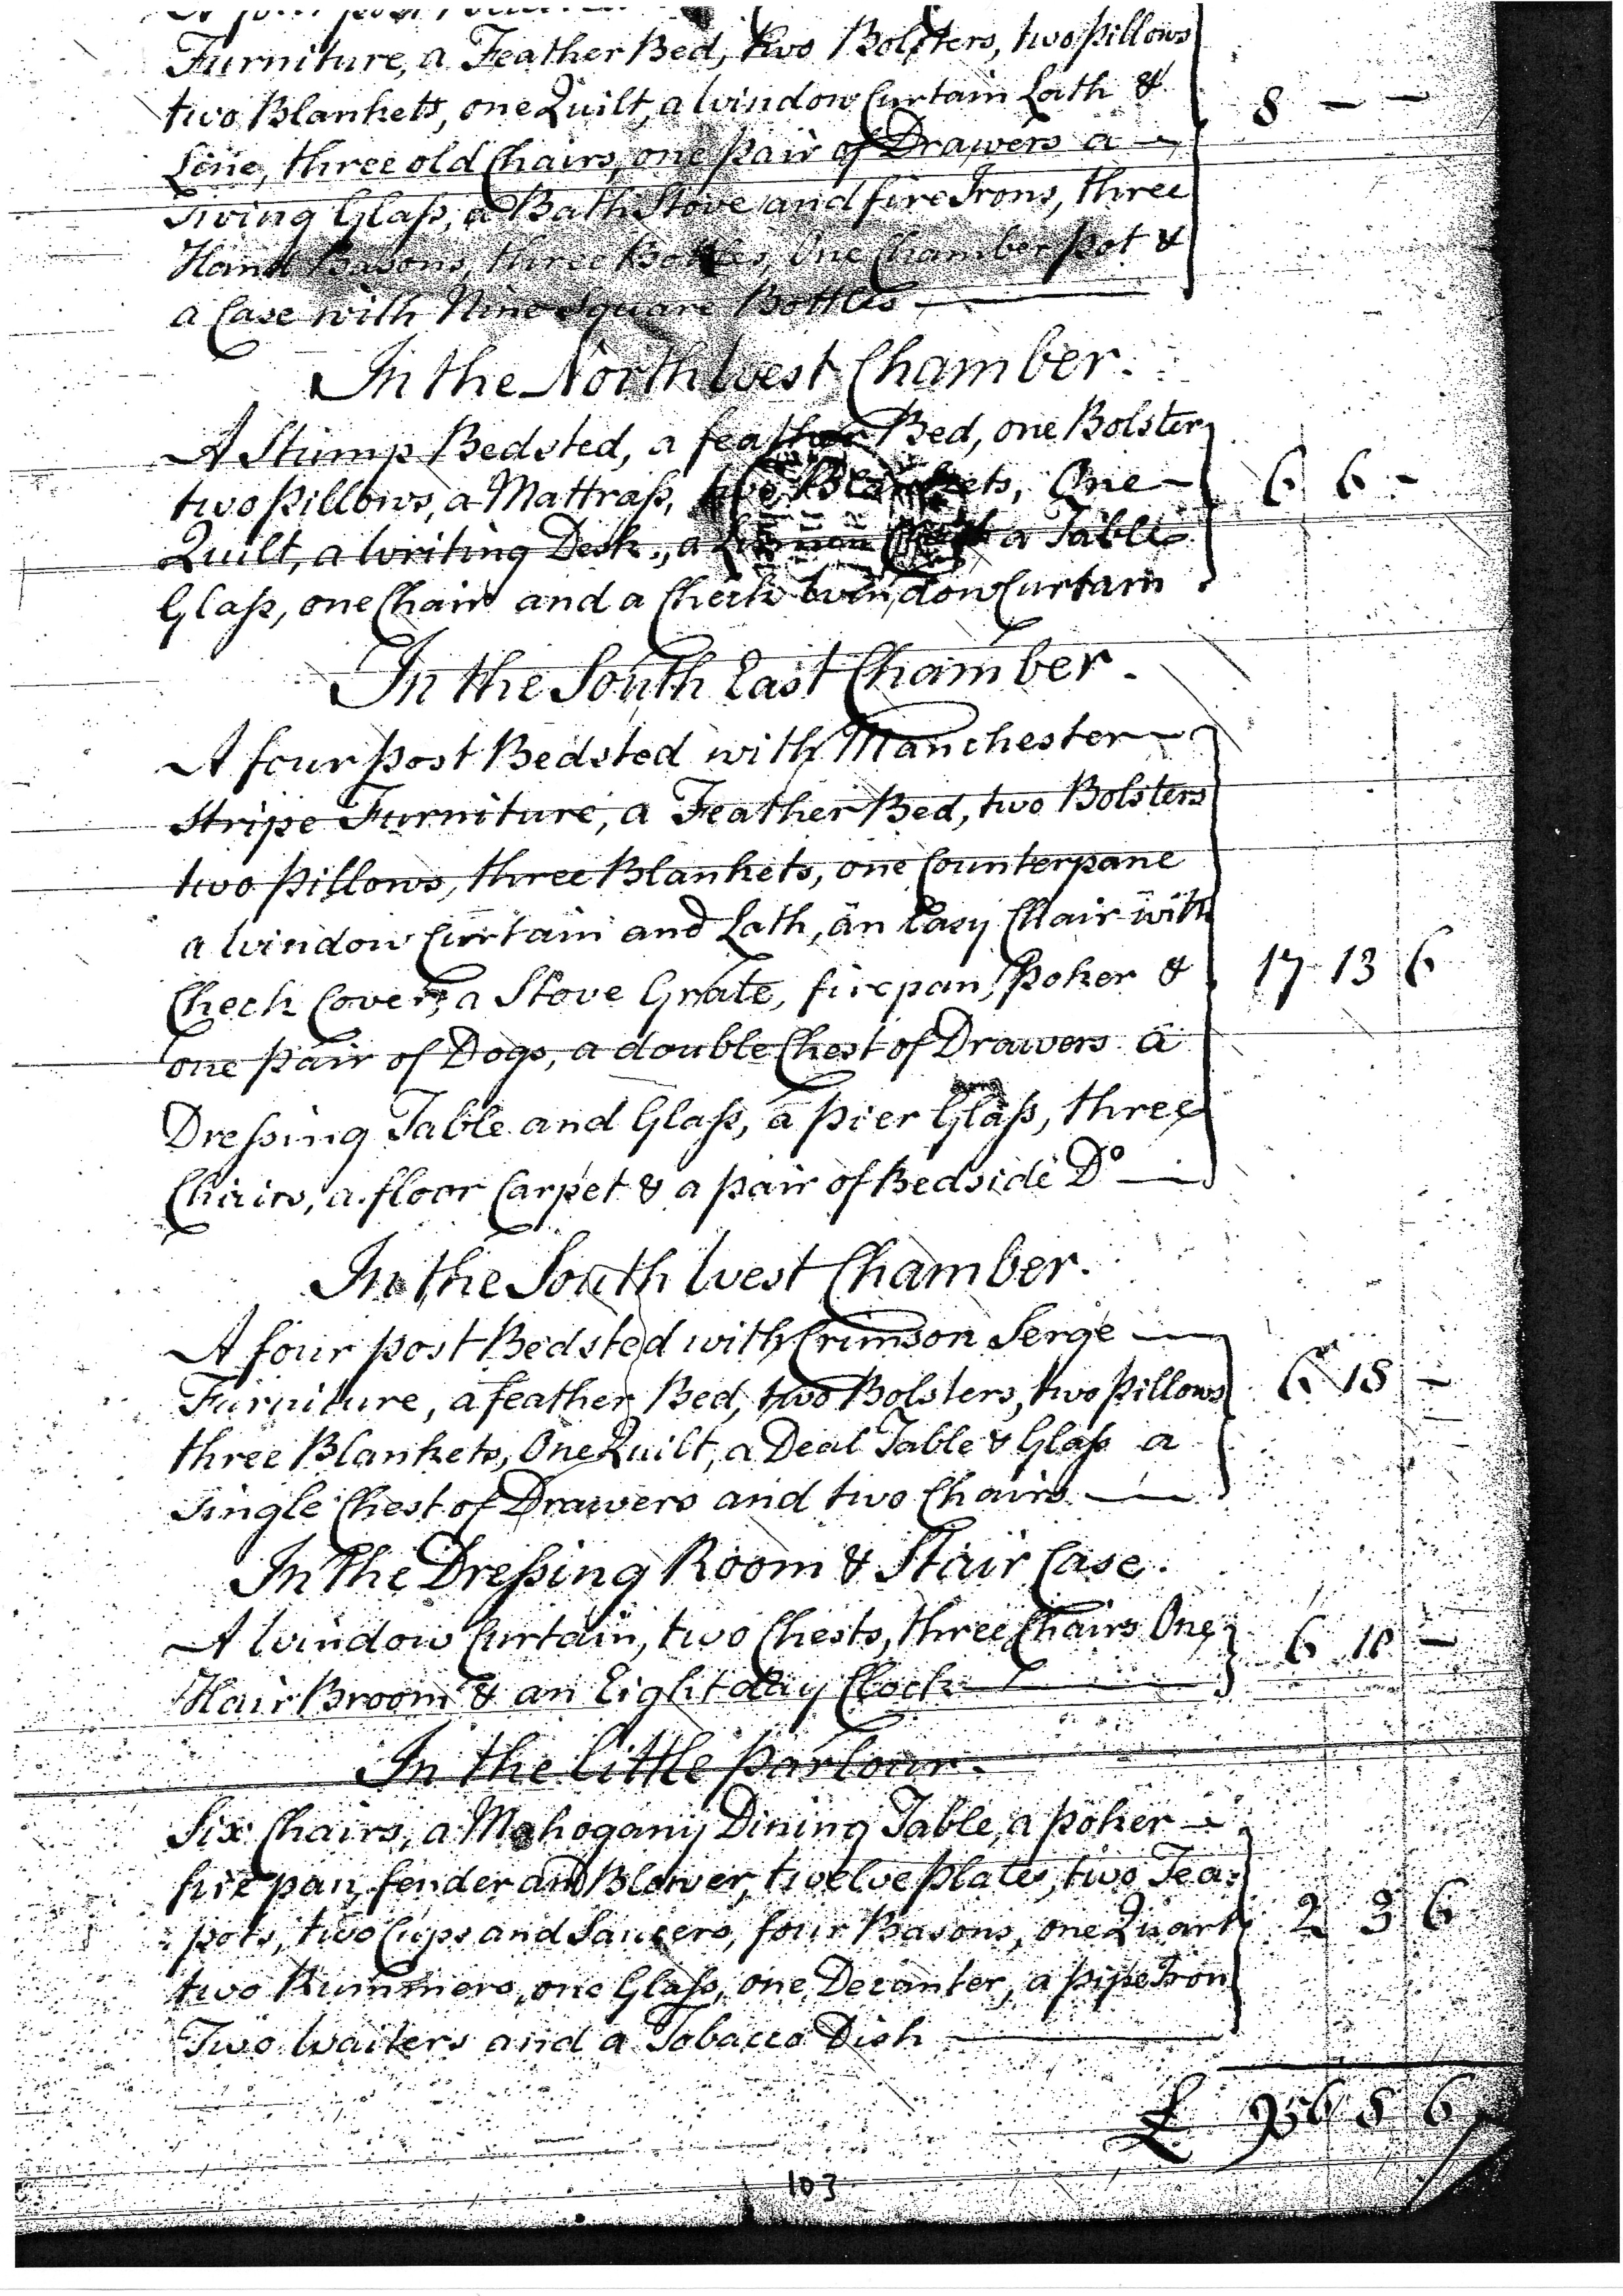 Furniture, a Feather Bed, two Bolsters, two pillows
two Blankets, one Quilt, a Window Curtain Lath & 8 — —
Line, three old Chairs, one pair of Drawers a —
Swing Glaſs, a Bath Stove and fire Irons, three
Hand Basons, three Bottles, One Chamber pot &
a Case with Nine Square Bottles —
In the North West Chamber.
A Stump Bedsted, a feather Bed, one Bolster
two pillows, a Mattraſs, two Blankets, One — 6 6 -
Quilt, a Writing Desk, a a Table
Glaſs, one Chair and a Check Window Curtain
In the South East Chamber.
A four post Bedsted with Manchester —
Stripe Furniture, a Feather Bed, two Bolsters
two pillows, three Blankets, one Counterpane
a Window Curtain and Lath, an Easy Chair with
Check Cover, a Stove Grate, firepan, poker & 17 13 6
one pair of Dogs, a double Chest of Drawers a
Dreſsing Table and Glaſs, a pier Glaſs, three
Chairs, a floor Carpet & a pair of Bedside Do —
In the South West Chamber.
A four post Bedsted with Crimson Serge —
Furniture, a feather Bed, two Bolsters, two pillows 6 18 —
three Blankets, One Quilt, a Deal Table & Glaſs a
single Chest of Drawers and two Chairs —
In the Dreſsing Room & Stair Case.
A Window Curtain, two Chests, three Chairs One 6 10 —
Hair Broom & an Eight day Clock —
In the little parlour.
Six Chairs, a Mahogany Dining Table, a poker —
fire pan, fender and Blower, twelve plates, two Tea=
=pots, two Cups and Saucers, four Basons, one Quart 2 3 6
two Rummers, one Glaſs, one Decanter, a pipe Iron
Two Waiters and a Tobacco Dish —
£ 8 6
103